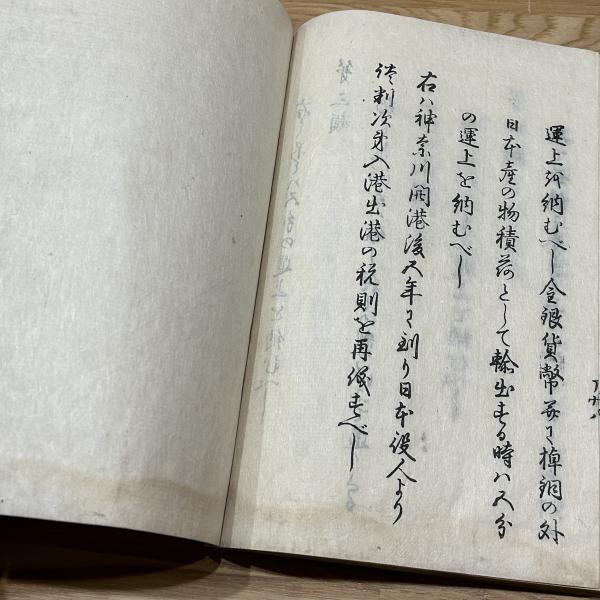 運上を納むべし金銀貨幣並に棹銅の外
日本産の物積荷として輸出する時ハ五分
の運上を納むべし
右ハ神奈川開港後五年に到り日本役人より
談判次第入港出港の税則を再議すべし
第三類